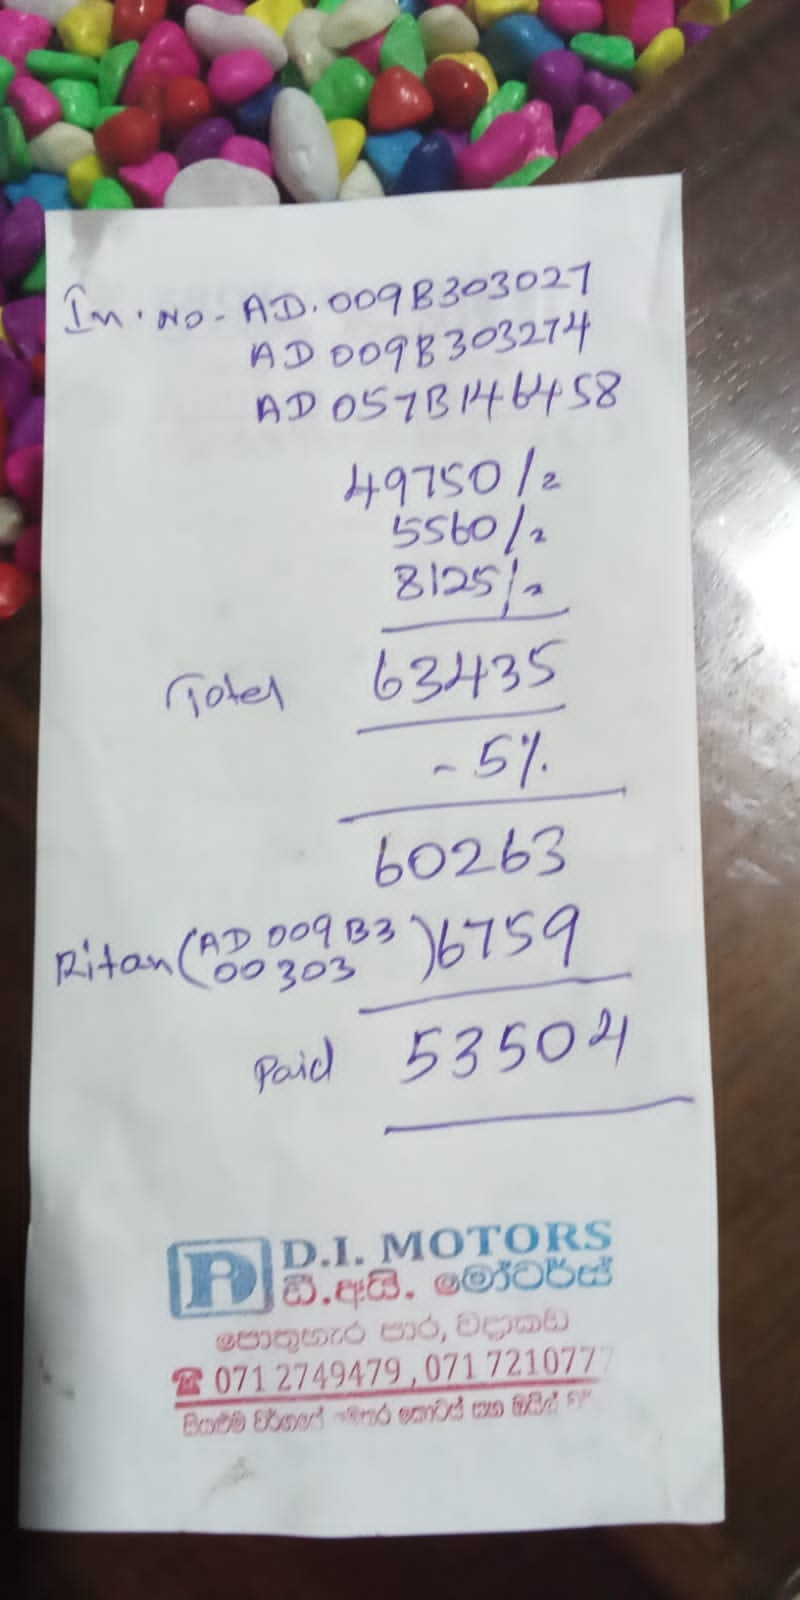 In. No - AD. 009B303027
AD 009B303274
AD 057B146458
49750/=
5560/=
8125/=
Totel 63435
- 5%
60263
Ritan (AD 009B3
00303) 6759
Paid 53504
D.I. MOTORS
ඩී.අයි. මෝටර්ස්
පොතුහැර පාර, වදාකඩ
071 2749479, 071 7210777
සියළුම වර්ගයේ කොටස් සහ